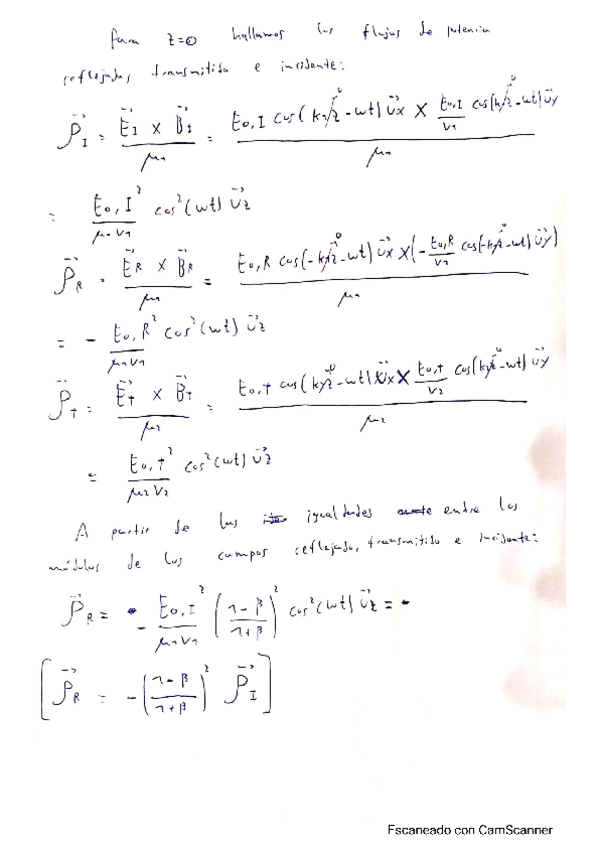 Para z=0 hallamos los flujos de potencia
reflejado, transmitido e incidente:
𝒫⃗_I = (E⃗_I × B⃗_I)/μ₁ = (E₀,I cos(k₁z⁰ - wt) u⃗x × E₀,I/v₁ cos(k₁z⁰ - wt) u⃗y)/μ₁
= E₀,I²/(μ₁v₁) cos²(wt) u⃗z
𝒫⃗_R = (E⃗_R × B⃗_R)/μ₁ = (E₀,R cos(-k₁z⁰ - wt) u⃗x × (-E₀,R/v₁ cos(-k₁z⁰ - wt) u⃗y))/μ₁
= - E₀,R²/(μ₁v₁) cos²(wt) u⃗z
𝒫⃗_T = (E⃗_T × B⃗_T)/μ₂ = (E₀,T cos(k₂z⁰ - wt) u⃗x × E₀,T/v₂ cos(k₂z⁰ - wt) u⃗y)/μ₂
= E₀,T²/(μ₂v₂) cos²(wt) u⃗z
A partir de las igualdades entre los
módulos de los campos reflejado, transmitido e incidente:
𝒫⃗_R = - E₀,I²/(μ₁v₁) ((1-β)/(1+β))² cos²(wt) u⃗z = -
[𝒫⃗_R = -((1-β)/(1+β))² 𝒫⃗_I]
Escaneado con CamScanner